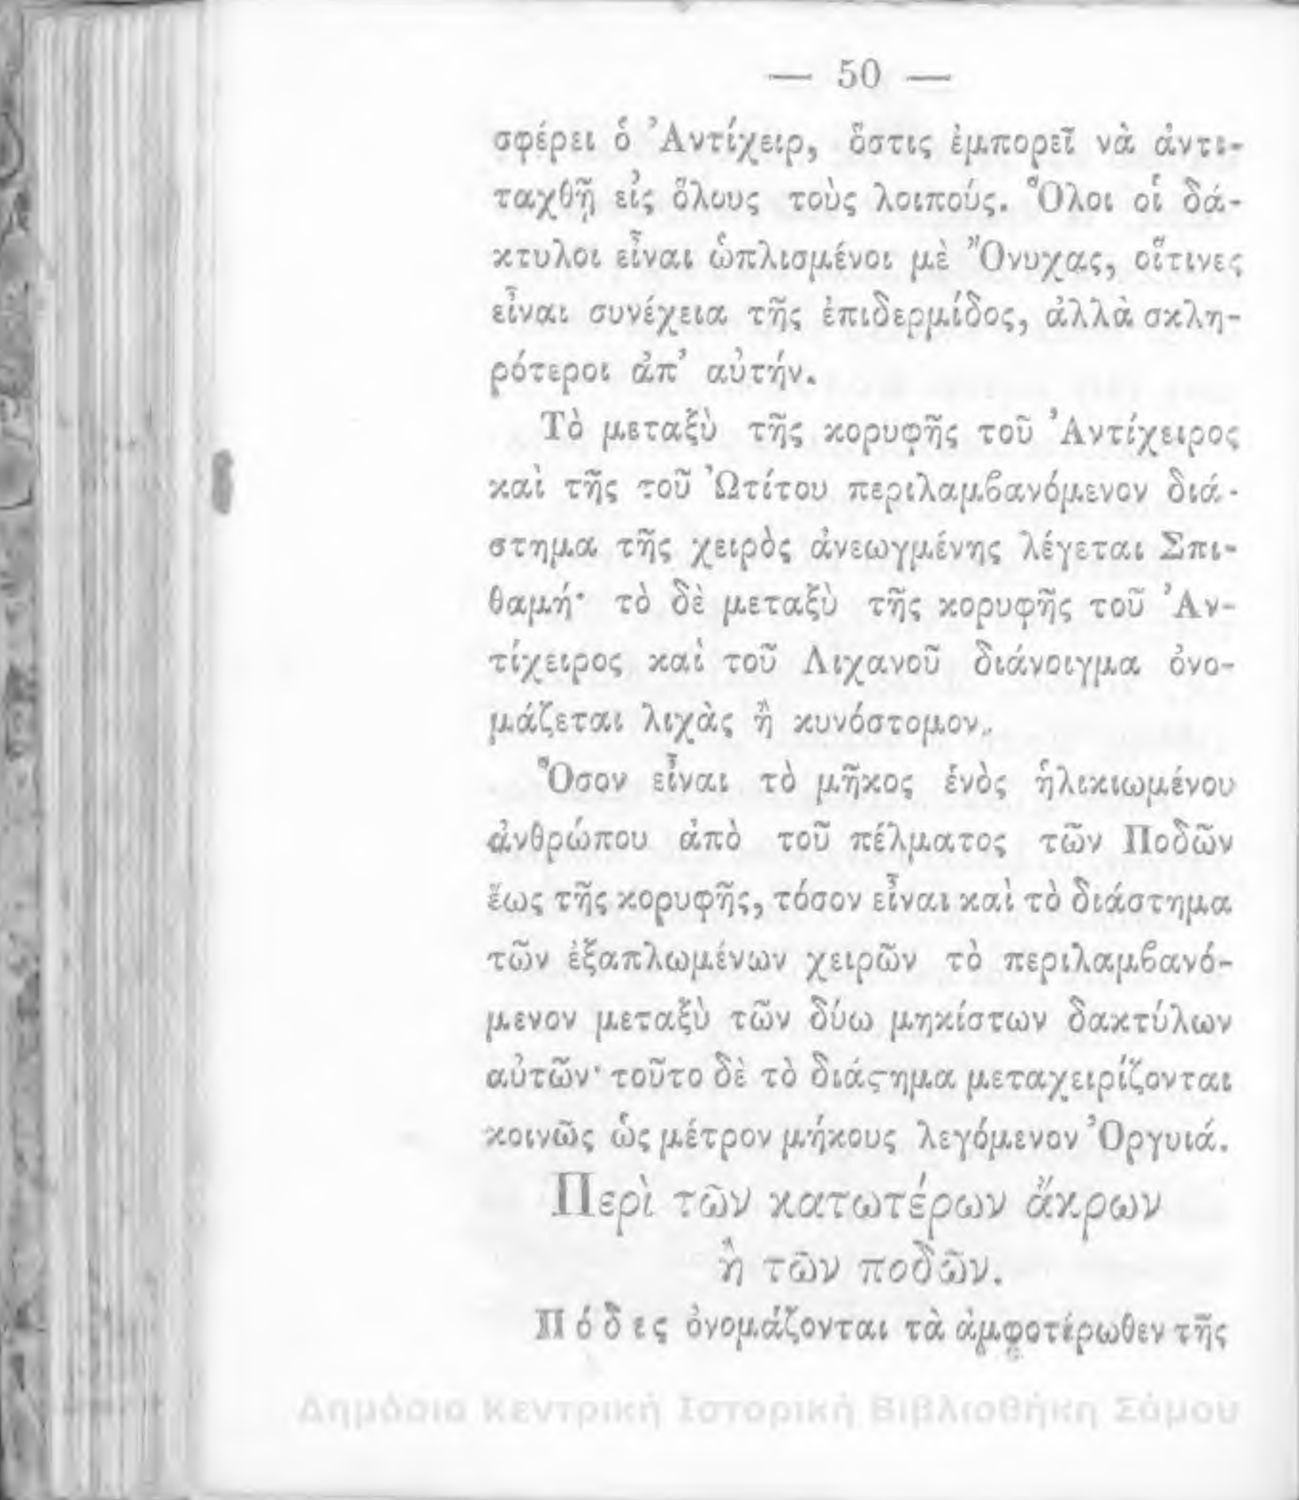 — 50 —
σφέρει ὁ Ἀντίχειρ, ὅστις ἐμπορεῖ νὰ ἀντι-
ταχθῇ εἰς ὅλους τοὺς λοιπούς. Ὅλοι οἱ δά-
κτυλοι εἶναι ὡπλισμένοι μὲ Ὄνυχας, οἵτινες
εἶναι συνέχεια τῆς ἐπιδερμίδος, ἀλλὰ σκλη-
ρότεροι ἀπ’ αὐτήν.
Τὸ μεταξὺ τῆς κορυφῆς τοῦ Ἀντίχειρος
καὶ τῆς τοῦ Ὠτίτου περιλαμϐανόμενον διά-
στημα τῆς χειρὸς ἀνεωγμένης λέγεται Σπι-
θαμή· τὸ δὲ μεταξὺ τῆς κορυφῆς τοῦ Ἀν-
τίχειρος καὶ τοῦ Λιχανοῦ διάνοιγμα ὀνο-
μάζεται λιχὰς ἢ κυνόστομον.
Ὅσον εἶναι τὸ μῆκος ἑνὸς ἡλικιωμένου
ἀνθρώπου ἀπὸ τοῦ πέλματος τῶν Ποδῶν
ἕως τῆς κορυφῆς, τόσον εἶναι καὶ τὸ διάστημα
τῶν ἐξαπλωμένων χειρῶν τὸ περιλαμϐανό-
μενον μεταξὺ τῶν δύω μηκίστων δακτύλων
αὐτῶν· τοῦτο δὲ τὸ διάϛημα μεταχειρίζονται
κοινῶς ὡς μέτρον μήκους λεγόμενον Ὀργυιά.
Περὶ τῶν κατωτέρων ἄκρων
ἢ τῶν ποδῶν.
Πόδες ὀνομάζονται τὰ ἀμφοτέρωθεν τῆς
Δημόσια Κεντρική Ιστορική Βιβλιοθήκη Σάμου